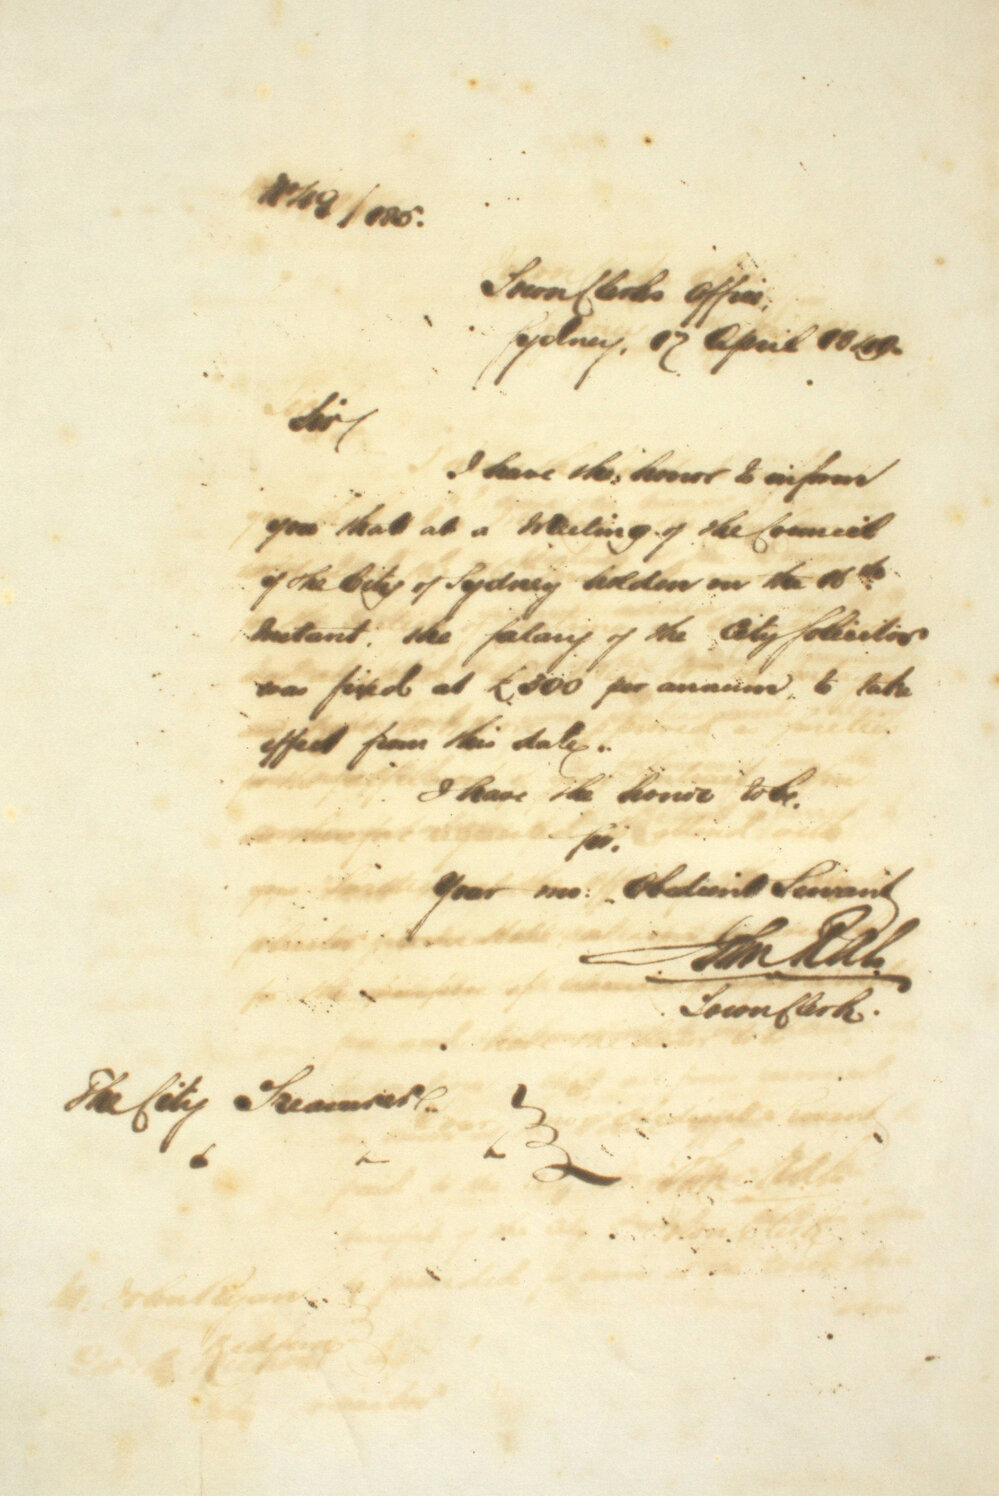 No 49/185.
Town Clerks Office,
Sydney, 17 April 1849.
Sir,
I have the honor to inform
you that at a Meeting of the Council
of the City of Sydney holden on the 16th
Instant, the salary of the City Solicitor
was fixed at £300 per annum, to take
effect from this date.
I have the honor to be,
Sir,
Your mo: Obedient Servant
John Rae
Town Clerk.
The City Treasurer.